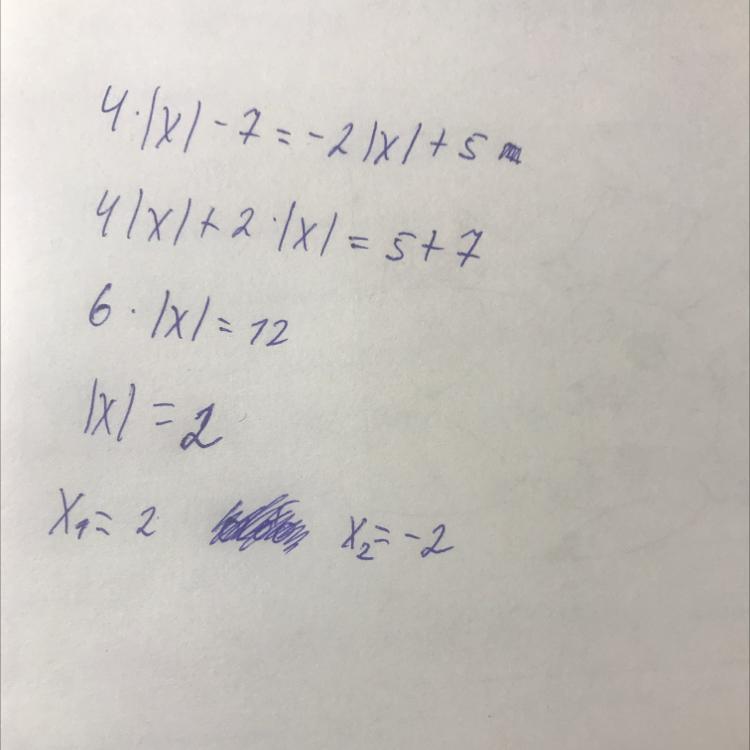 4·|x| - 7 = -2|x| + 5
4|x| + 2·|x| = 5 + 7
6·|x| = 12
|x| = 2
x₁ = 2 x₂ = -2